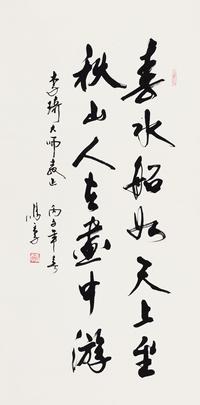 春水船如天上坐
秋山人在画中游
大师教正
丙子年春